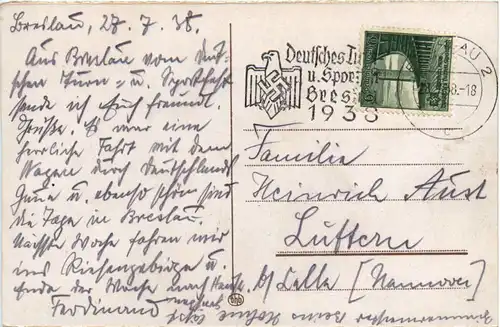 Breslau, 27. 7. 38.
Aus Breslau vom Deut-
schen Turn- u. Sportfest
sende ich Euch freundl.
Grüße. Es war eine
herrliche Fahrt mit dem
Wagen durch Deutschlands
Gaue u. ebenso schön sind
die Tage in Breslau.
Nächste Woche fahren wir
ins Riesengebirge u.
Ende der Woche nach Hause.
Ferdinand
Deutsches Tu
u. Spor
Bres
1938
AU 2
8.-18
Familie
Heinrich Aust
b/ Celle [Hannover]